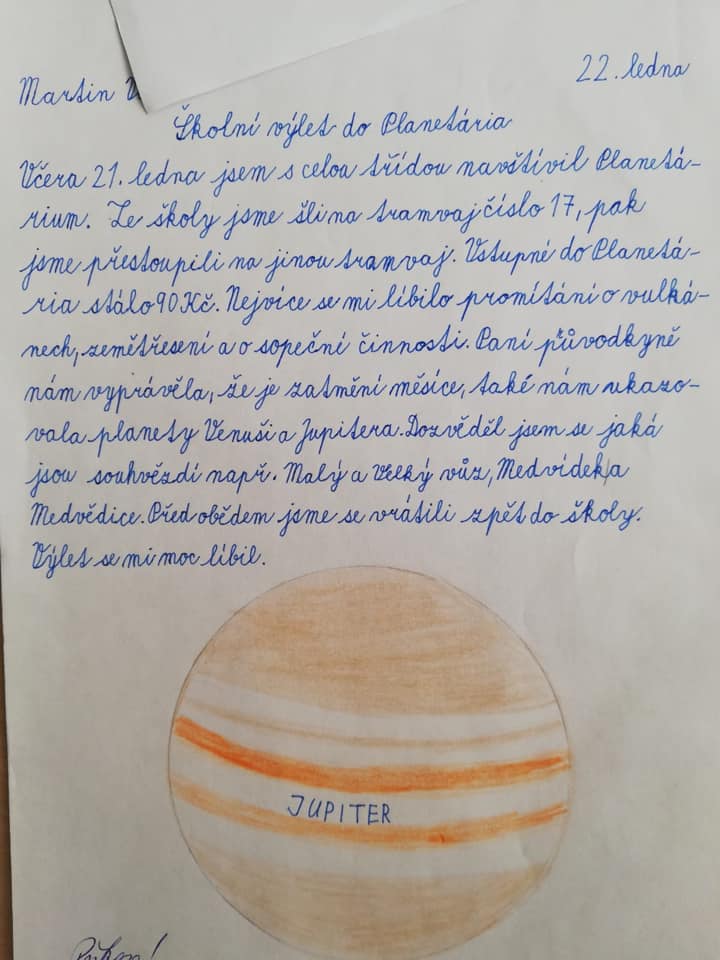 Martin V
22. ledna
Školní výlet do Planetária
Včera 21. ledna jsem s celou třídou navštívil Planetá-
rium. Ze školy jsme šli na tramvaj číslo 17, pak
jsme přestoupili na jinou tramvaj. Vstupné do Planetá-
ria stálo 90 Kč. Nejvíce se mi líbilo promítání o vulká-
nech, zemětřesení a o sopeční činnosti. Paní průvodkyně
nám vyprávěla, že je zatmění měsíce, také nám ukazo-
vala planety Venuši a Jupitera. Dozvěděl jsem se jaká
jsou souhvězdí např. Malý a Velký vůz, Medvídek a
Medvědice. Před obědem jsme se vrátili zpět do školy.
Výlet se mi moc líbil.
JUPITER